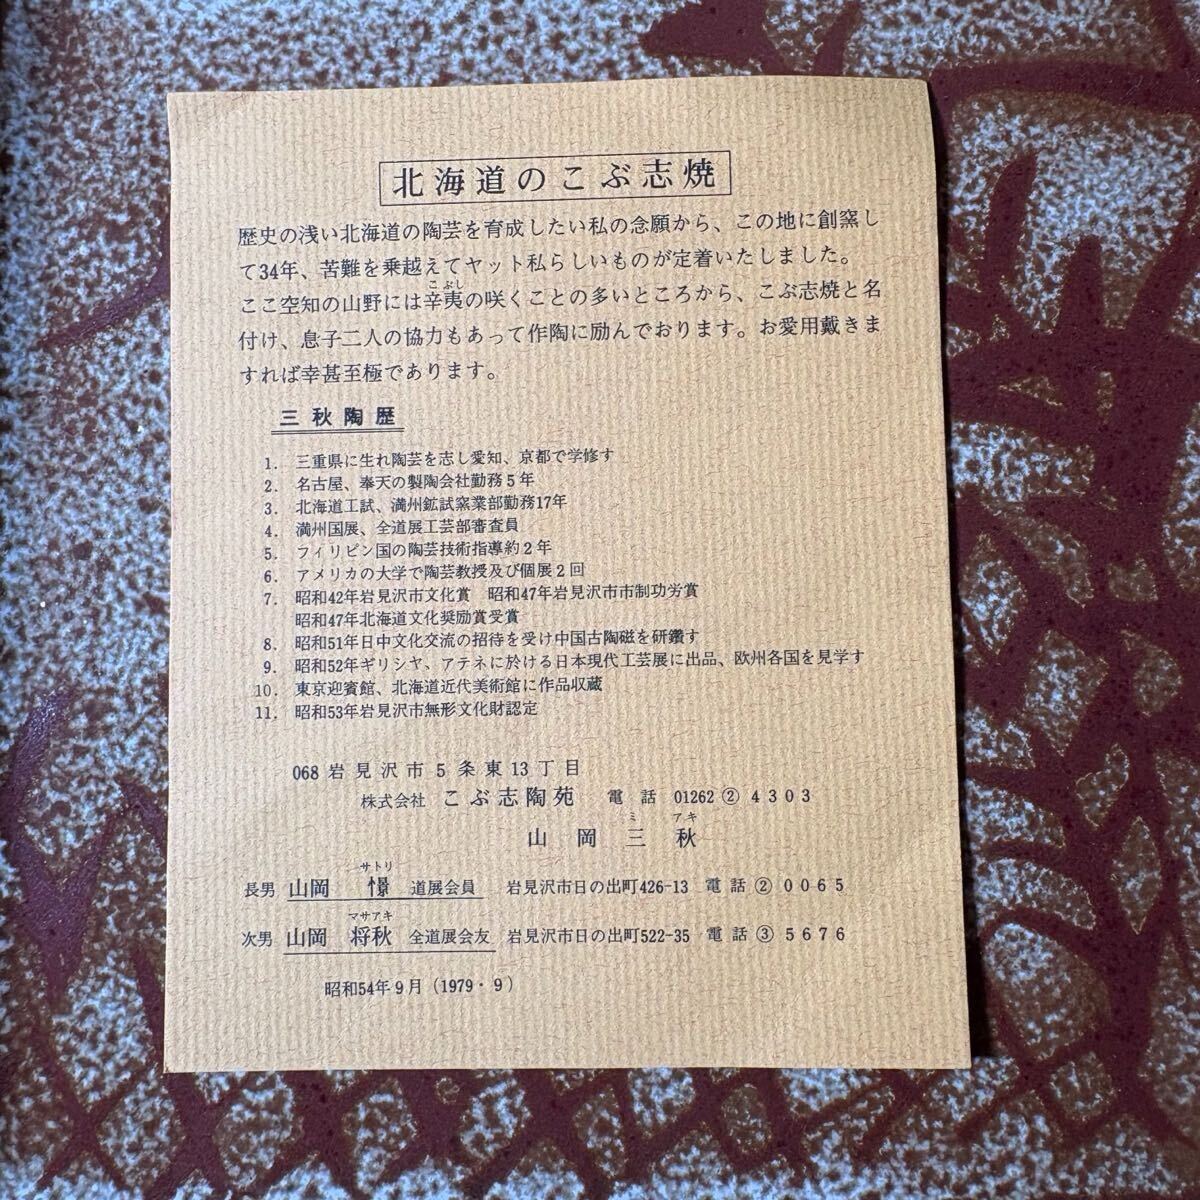 北海道のこぶ志焼
歴史の浅い北海道の陶芸を育成したい私の念願から、この地に創窯し
て34年、苦難を乗越えてヤット私らしいものが定着いたしました。
こぶし
ここ空知の山野には辛夷の咲くことの多いところから、こぶ志焼と名
付け、息子二人の協力もあって作陶に励んでおります。お愛用戴きま
すれば幸甚至極であります。
三秋陶歴
1. 三重県に生れ陶芸を志し愛知、京都で学修す
2. 名古屋、奉天の製陶会社勤務5年
3. 北海道工試、満州鉱試窯業部勤務17年
4. 満州国展、全道展工芸部審査員
5. フィリピン国の陶芸技術指導約2年
6. アメリカの大学で陶芸教授及び個展2回
7. 昭和42年岩見沢市文化賞 昭和47年岩見沢市市制功労賞
昭和47年北海道文化奨励賞受賞
8. 昭和51年日中文化交流の招待を受け中国古陶磁を研鑽す
9. 昭和52年ギリシヤ、アテネに於ける日本現代工芸展に出品、欧州各国を見学す
10. 東京迎賓館、北海道近代美術館に作品収蔵
11. 昭和53年岩見沢市無形文化財認定
068 岩見沢市5条東13丁目
株式会社 こぶ志陶苑 電話 01262 ② 4303
ミ アキ
山岡三秋
サトリ
長男 山岡 憬 道展会員 岩見沢市日の出町426-13 電話 ② 0065
マサアキ
次男 山岡 将秋 全道展会友 岩見沢市日の出町522-35 電話 ③ 5676
昭和54年9月(1979・9)